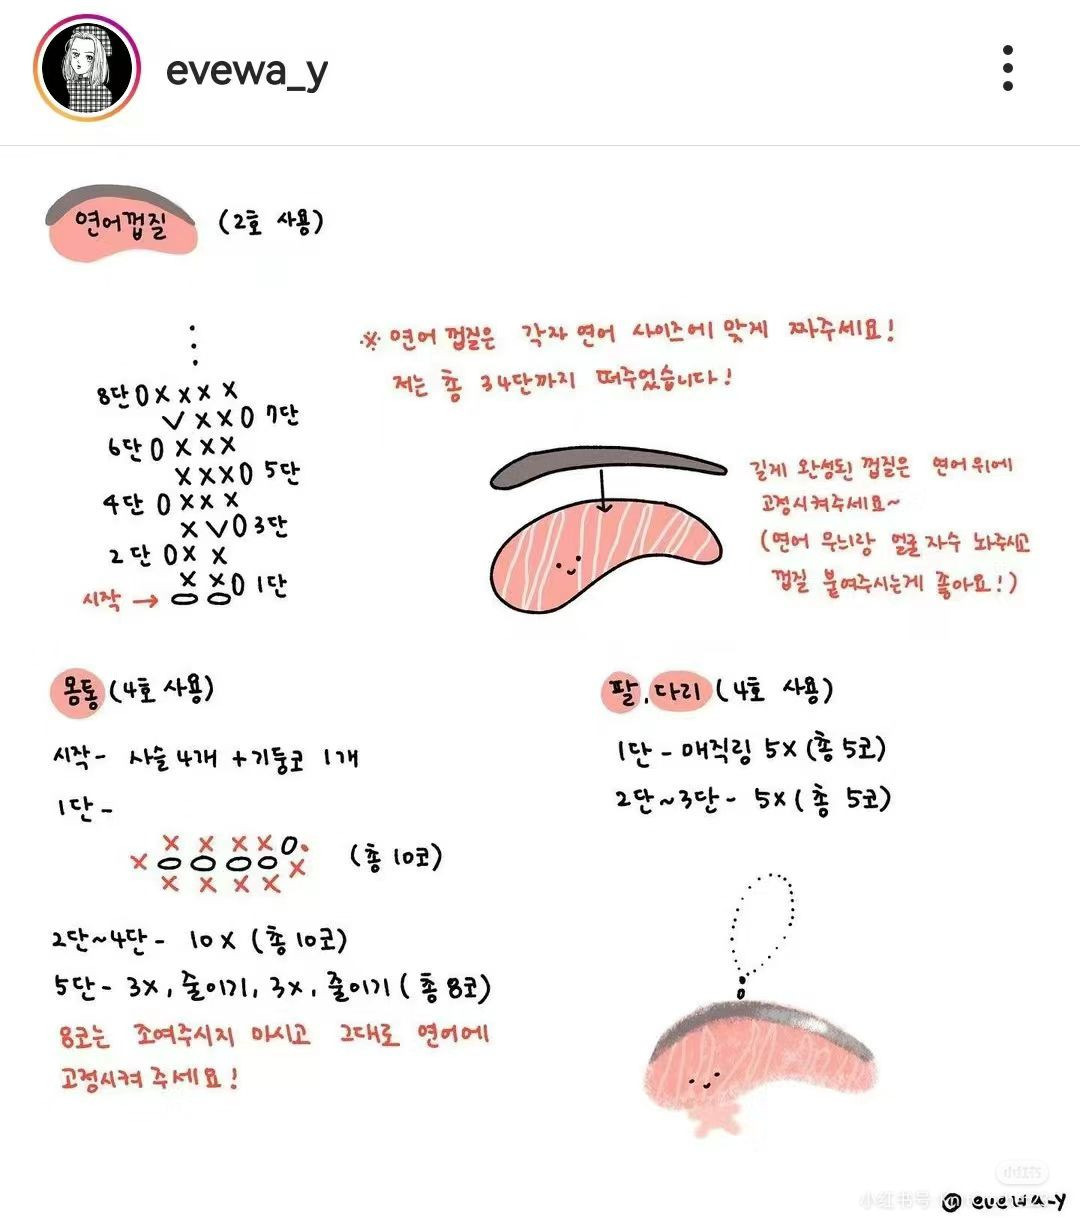 evewa_y
연어껍질 (2호 사용)
※ 연어 껍질은 각자 연어 사이즈에 맞게 짜주세요!
저는 총 34단까지 떠주었습니다!
8단 0 x x x x
v x x 0 7단
6단 0 x x x
x x x 0 5단
4단 0 x x x
x v 0 3단
2단 0 x x
x x 0 1단
시작 →
길게 완성된 껍질은 연어 위에
고정시켜주세요~
(연어 무늬랑 얼굴 자수 놔주시고
껍질 붙여주시는게 좋아요!)
몸통 (4호 사용)
시작- 사슬 4개 + 기둥코 1개
1단-
x x x x 0
x 0 0 0 0 x
x x x x
(총 10코)
2단~4단- 10x (총 10코)
5단- 3x, 줄이기, 3x, 줄이기 (총 8코)
8코는 조여주시지 마시고 그대로 연어에
고정시켜 주세요!
팔, 다리 (4호 사용)
1단- 매직링 5x (총 5코)
2단~3단- 5x (총 5코)
小红书号
@evewa_y